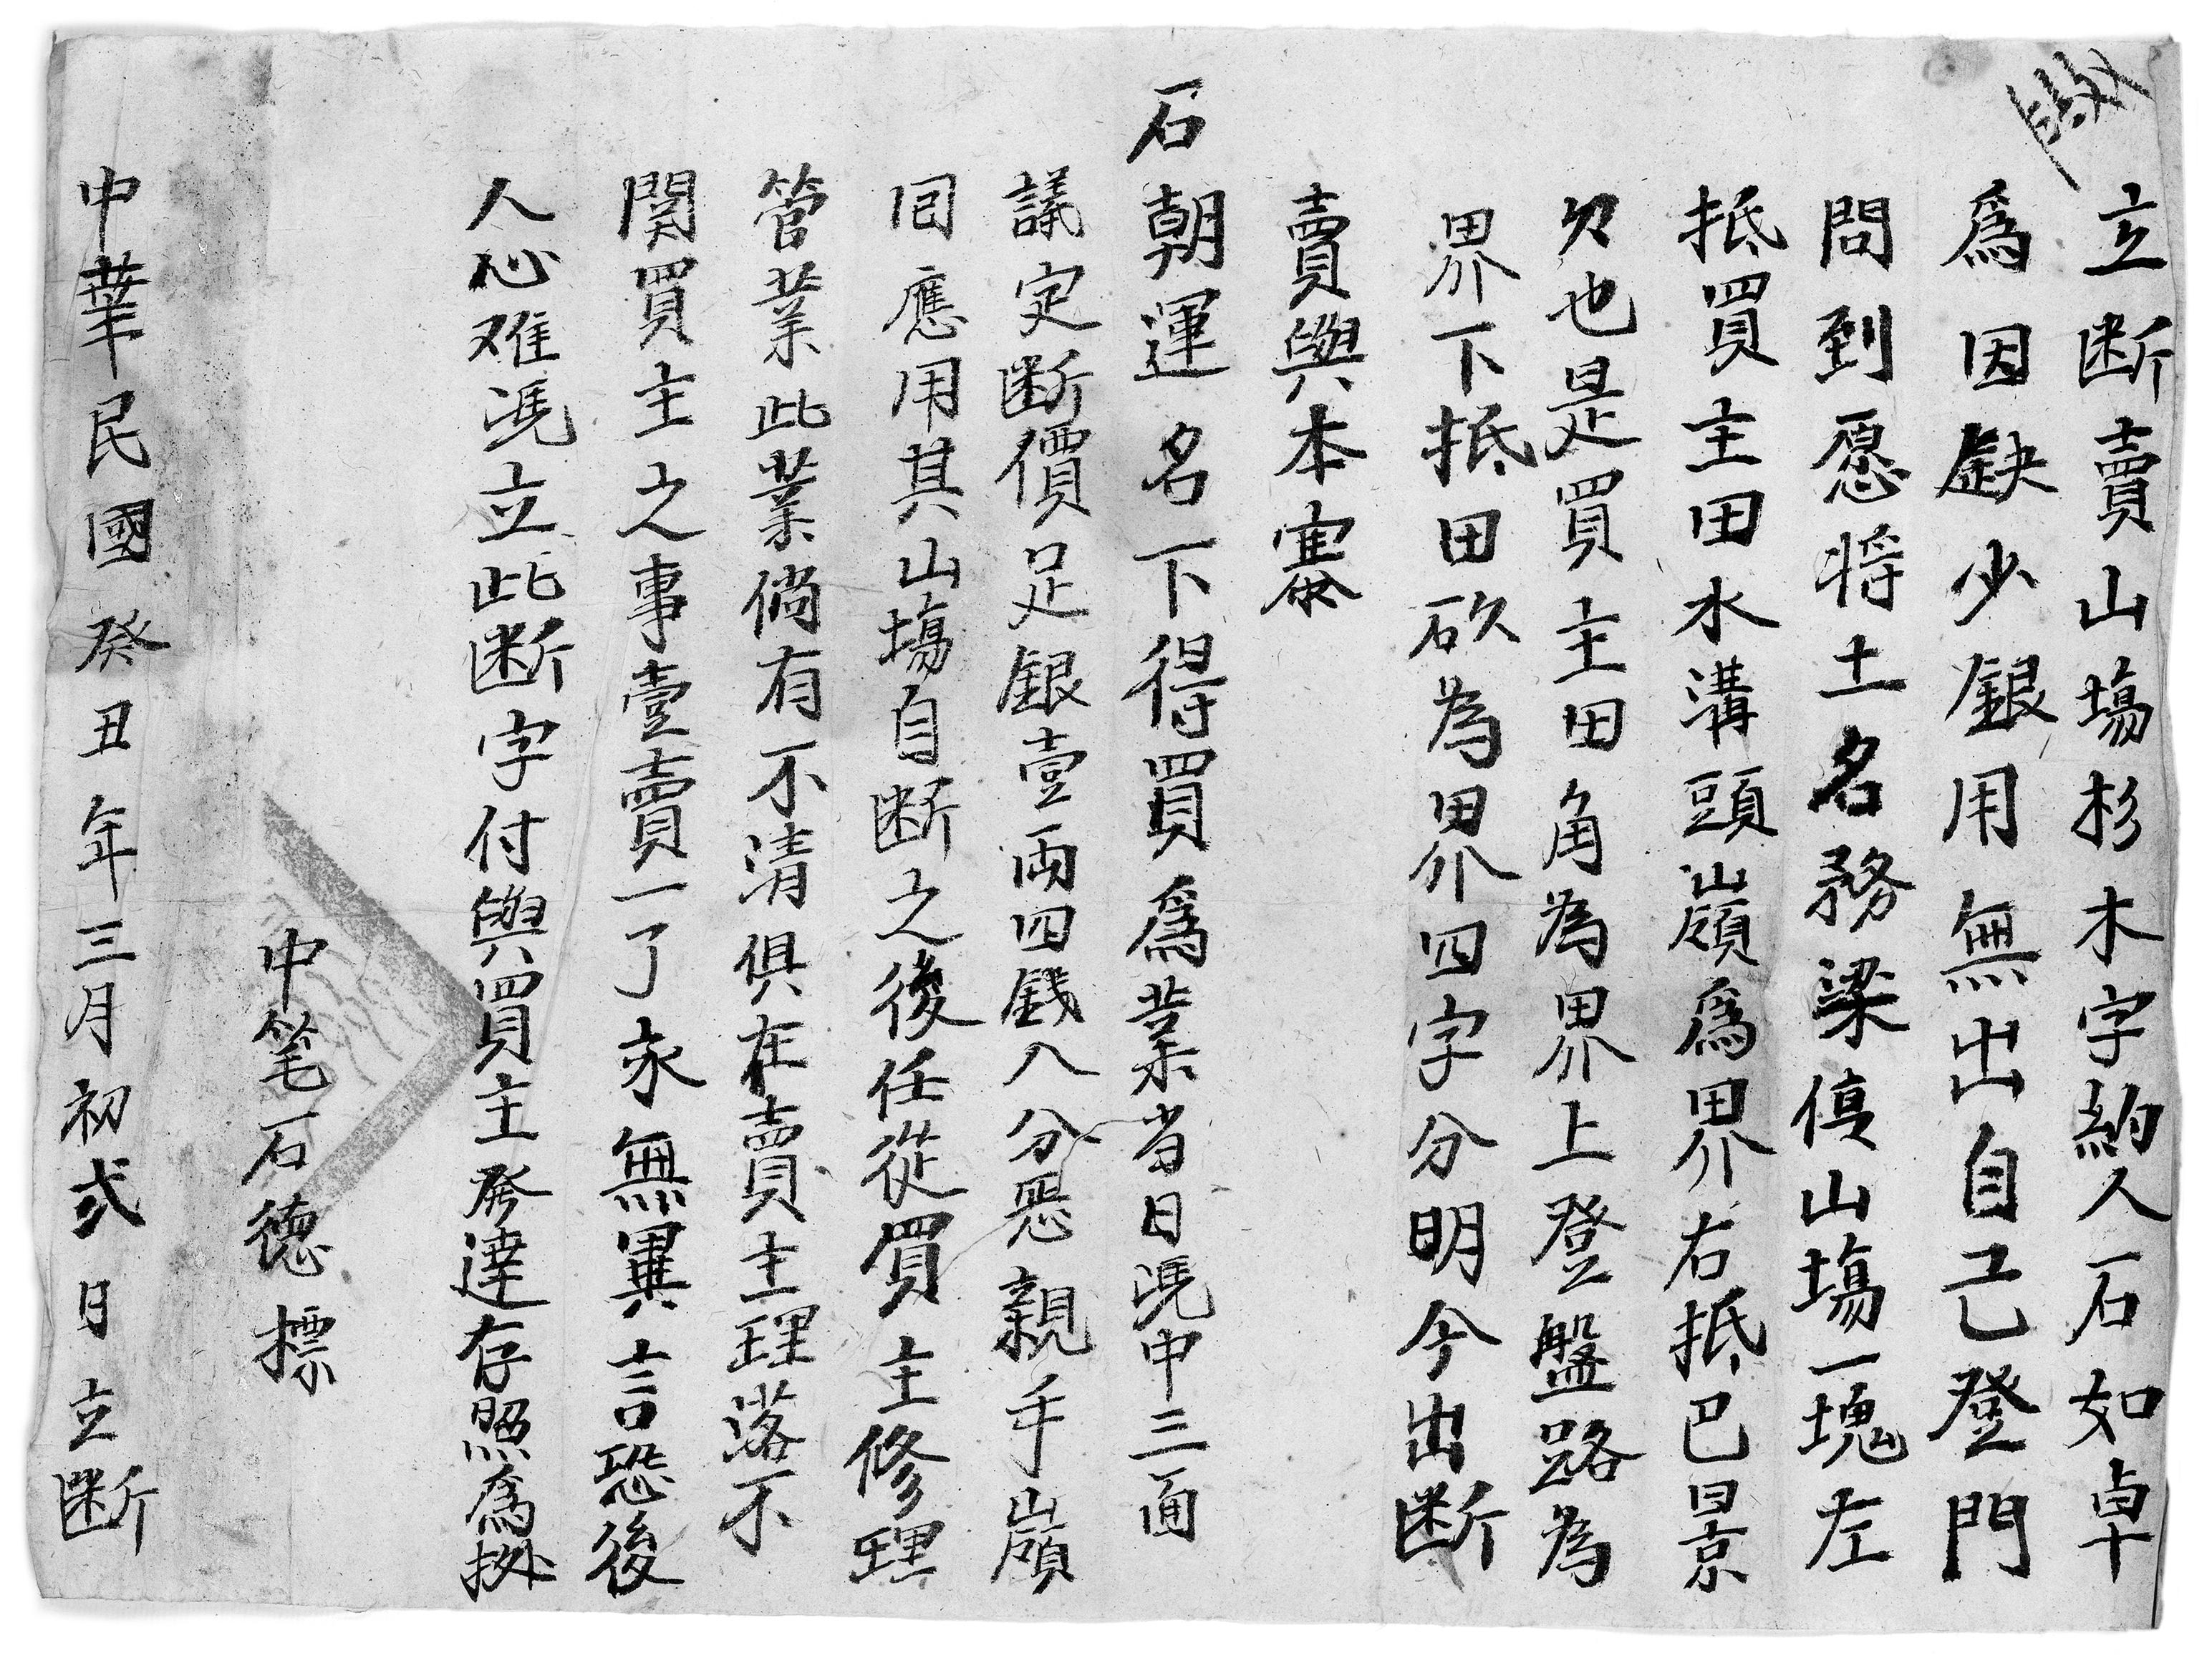 立断賣山塲杉木字約人石如卓
爲因缺少銀用無出自己登門
問到愿将土名務梁停山塲一塊左
抵買主田水溝頭嶺爲界右抵巴景
欠也是買主田角為界上登盤路為
界下抵田砍為界四字分明今出断
賣與本寨
石朝運名下得買爲業当日凴中三面
議定断價足銀壹両四錢八分恩親手嶺
囬應用其山塲自断之後任從買主修理
管業此業倘有不清俱在賣主理落不
関買主之事壹賣一了永無異言恐後
人心难凴立此断字付與買主發達存照爲拠
中笔石德標
中華民國癸丑年三月初弍日立断